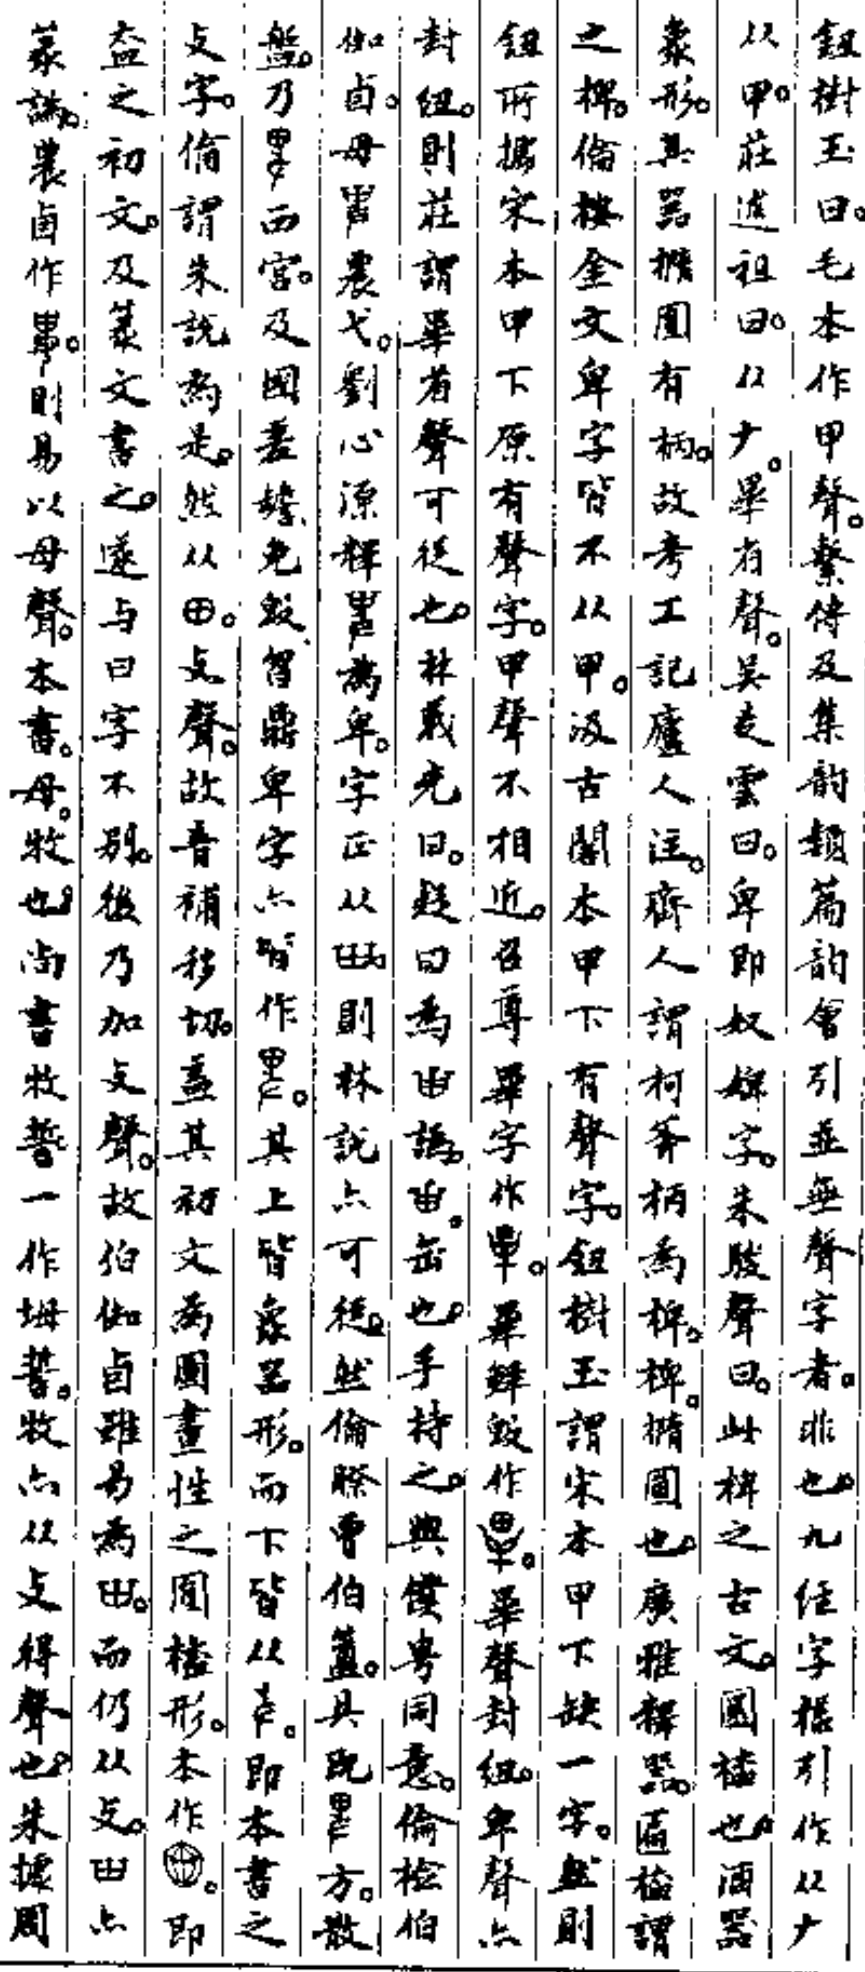 鈕樹玉曰。毛本作甲聲。繫傳及集韵類篇韵會引並無聲字者。非也。九經字樣引作从𠂇
从甲。莊述祖曰。从𠂇。𤰞有聲。吳夌雲曰。卑即奴婢字。朱駿聲曰。此椑之古文。圜榼也。酒器
象形。其器橢圜有柄。故考工記廬人注。齊人謂柯斧柄為椑。椑。橢圜也。廣雅釋器。匾榼謂
之椑。倫按金文卑字皆不从甲。汲古閣本甲下有聲字。鈕樹玉謂宋本甲下缺一字。然則
鈕所據宋本甲下原有聲字。甲聲不相近。召尊畢字作。畢鮮𣪘作。畢聲封紐。卑聲亦
封紐。則莊謂畢省聲可從也。林義光曰。疑曰為甶譌。甶。缶也。手持之。與僕𢍏同意。倫檢伯
卣。母農弋。劉心源釋為卑。字正从則林說亦可從。然倫睬曹伯簠。具既方。散
盤。乃西宮。及國差𦉜免𣪘智鼎卑字亦皆作。其上皆象器形。而下皆从𠬛。即本書之
攴字。倫謂朱說為是。然从田。攴聲。故音補移切。蓋其初文為圜畫性之圜榼形。本作。即
盇之初文。及篆文書之。遂与曰字不別。後乃加攴聲。故伯卣雖易為甶。而仍从攴。甶亦
篆譌。農卣作。則易以母聲。本書。母。牧也。尚書牧誓一作坶誓。牧亦从攴得聲也。朱據周